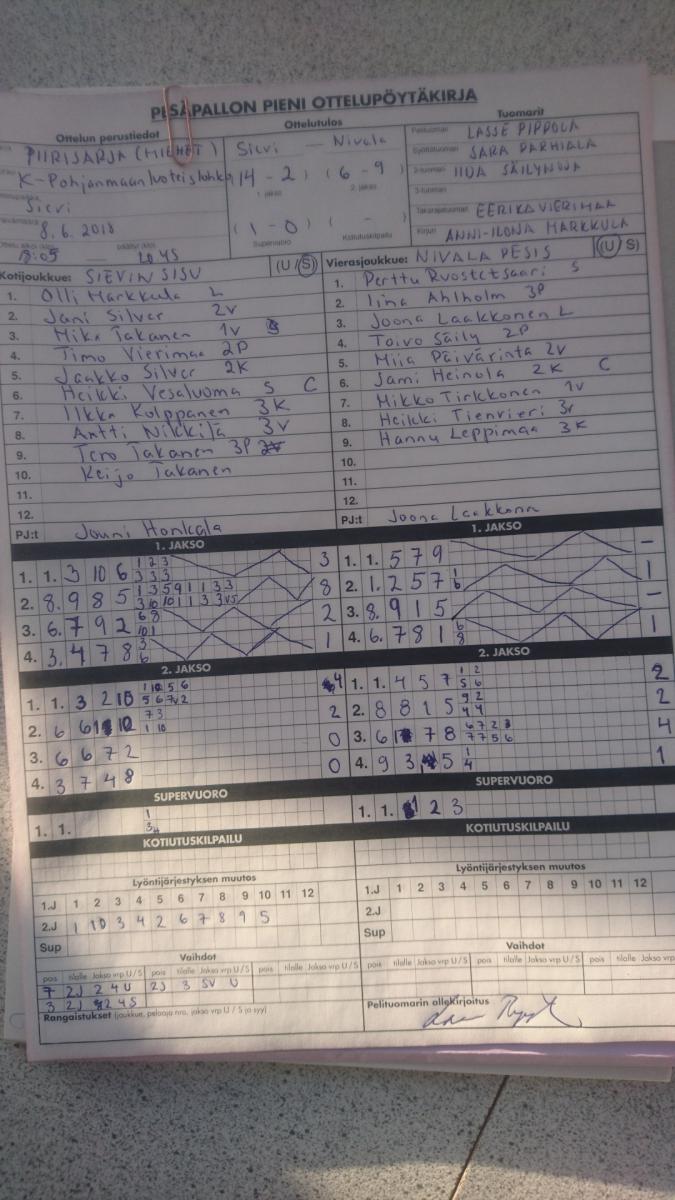 PESÄPALLON PIENI OTTELUPÖYTÄKIRJA
Ottelun perustiedot
PIIRISARJA (MIEHET)
K-Pohjanmaan luoteislohko
Sievi
8.6.2018
18:05 20.45
Ottelutulos
Sievi — Nivala
14 - 2 ( 6 - 9
1. jakso 2. jakso
( 1 - 0 ) ( - )
Supervuoro Kotiutuskilpailu
Tuomarit
Pelituomari LASSE PIPPOLA
Syöttötuomari SARA PARHIALA
2-tuomari IIDA SÄILYNOJA
3-tuomari
Takarajatuomari EERIKA VIERIMAA
Kirjuri ANNI-ILONA MARKKULA
Kotijoukkue: SIEVIN SISU (U / S)
1. Olli Markkula L
2. Jani Silver 2V
3. Mika Takanen 1V
4. Timo Vierimaa 2P
5. Jaakko Silver 2K
6. Heikki Vesaluoma S C
7. Ilkka Kolppanen 3K
8. Antti Nikkilä 3V
9. Tero Takanen 3P
10. Keijo Takanen
11.
12.
PJ:t Jouni Honkala
Vierasjoukkue: NIVALA PESIS (U / S)
1. Perttu Ruostetsaari S
2. Iina Ahlholm 3P
3. Joona Laakkonen L
4. Toivo Säily 2P
5. Miia Päivärinta 2V
6. Jami Heinola 2K C
7. Mikko Tirkkonen 1V
8. Heikki Tienvieri 3V
9. Hannu Leppimaa 3K
10.
11.
12.
PJ:t Joona Laakkonen
1. JAKSO
1. 1. 3 10 6 1 2 3 3
3 3 3
2. 8. 9 8 5 1 3 5 9 1 1 3 3 8
3. 6. 7 9 2 6 8 2
10 1
4. 3. 4 7 8 3 1
6
1. JAKSO
1. 1. 5 7 9 –
2. 1. 2 5 7 1 1
6
3. 8. 9 1 5 –
4. 6. 7 8 1 6 1
8
2. JAKSO
1. 1. 3 2 10 1 10 5 6 4
5 6 7 2
2. 6 6 1 10 7 3 2
1 10
3. 6 6 7 2 0
4. 3 7 4 8 0
2. JAKSO
1. 1. 4 5 7 1 2 2
5 6
2. 8 8 1 5 9 2 2
4 4
3. 6 7 8 6 7 2 3 4
7 7 5 6
4. 9 3 5 1 1
4
SUPERVUORO
1. 1. 1
3
SUPERVUORO
1. 1. 1 2 3
KOTIUTUSKILPAILU
KOTIUTUSKILPAILU
Lyöntijärjestyksen muutos
1.J 1 2 3 4 5 6 7 8 9 10 11 12
2.J 1 10 3 4 2 6 7 8 9 5
Sup
Lyöntijärjestyksen muutos
1.J 1 2 3 4 5 6 7 8 9 10 11 12
2.J
Sup
Vaihdot
pois tilalle Jakso vrp U / S pois tilalle Jakso vrp U / S pois tilalle Jakso vrp U / S
7 2J 2 4 U 2J 3 SV U
3 2J 2 4 S
Rangaistukset (joukkue, pelaaja nro, jakso vrp U / S ja syy)
Vaihdot
pois tilalle Jakso vrp U / S pois tilalle Jakso vrp U / S pois tilalle Jakso vrp
Pelituomarin allekirjoitus